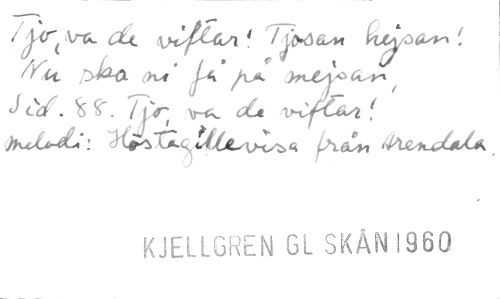 Tjo, va de viftar! Tjosan hejsan!
Nu ska ni få på mejsan,
Sid. 88. Tjo, va de viftar!
melodi: Höstagillevisa från Arendala.
KJELLGREN GL SKÅN 1960